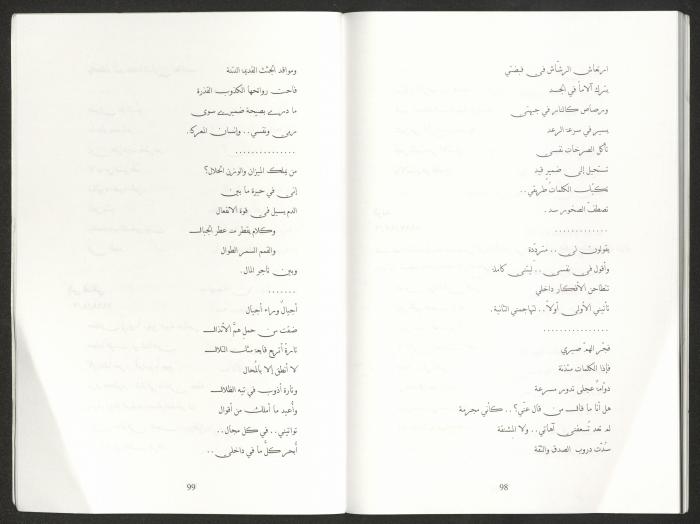 ارتعاش الرشّاش في قبضتي
يترك آلاماً في الجسد
ورصاص كالنار في جبهتي
يسير في سرعة الرعد
تأكل الصرخات نفسي
تستحيل إلى ضمير قيد
تكبّلك الكلمات طريقي..
تصطفّ الصخور سد.
.............
يقولون لي.. متردّدة
وأقول في نفسي.. ليتني كاملة
تتطاحن الأفكار داخلي
تأتيني الأولى أولاً.. تهاجمني الثانية.
...............
فجّر الهمّ صبري
فإذا الكلمات سندنة
دوّاماً عجلى تدور مسرعة
هل أنا ما قالت من قال عنّي؟.. كأني مجرمة
لم تعد تُسعفني آهاتي.. ولا المشنقة
سُدّت دروب الصدق والثقة
98
ومواقد الجثث القديدة النتنة
فاحت روائحها الكذوب القذرة
ما درى بصيحة ضميري سوى
ربّي ونفسي.. وإنسان المعركة.
..............
من يملك الميزان والوزن الحلال؟
إنّي في حيرة ما بين
الدم يسيل في قوة الانفعال
وكلام يقطر من عطر الجبال
والقمم السمر الطوال
وبين تاجر المال.
.......
أجيالٌ وراء أجيال
ضقت من حمل همّ الأنذال
تارةً أتربع قابعة مئات التلال
لا أنطق إلا بالمحال
وتارة أذوب في تيه الظلال
وأعيد ما أملك من أقوال
تواتيني.. في كل مجال..
أبحر كلّ ما في داخلي..
99